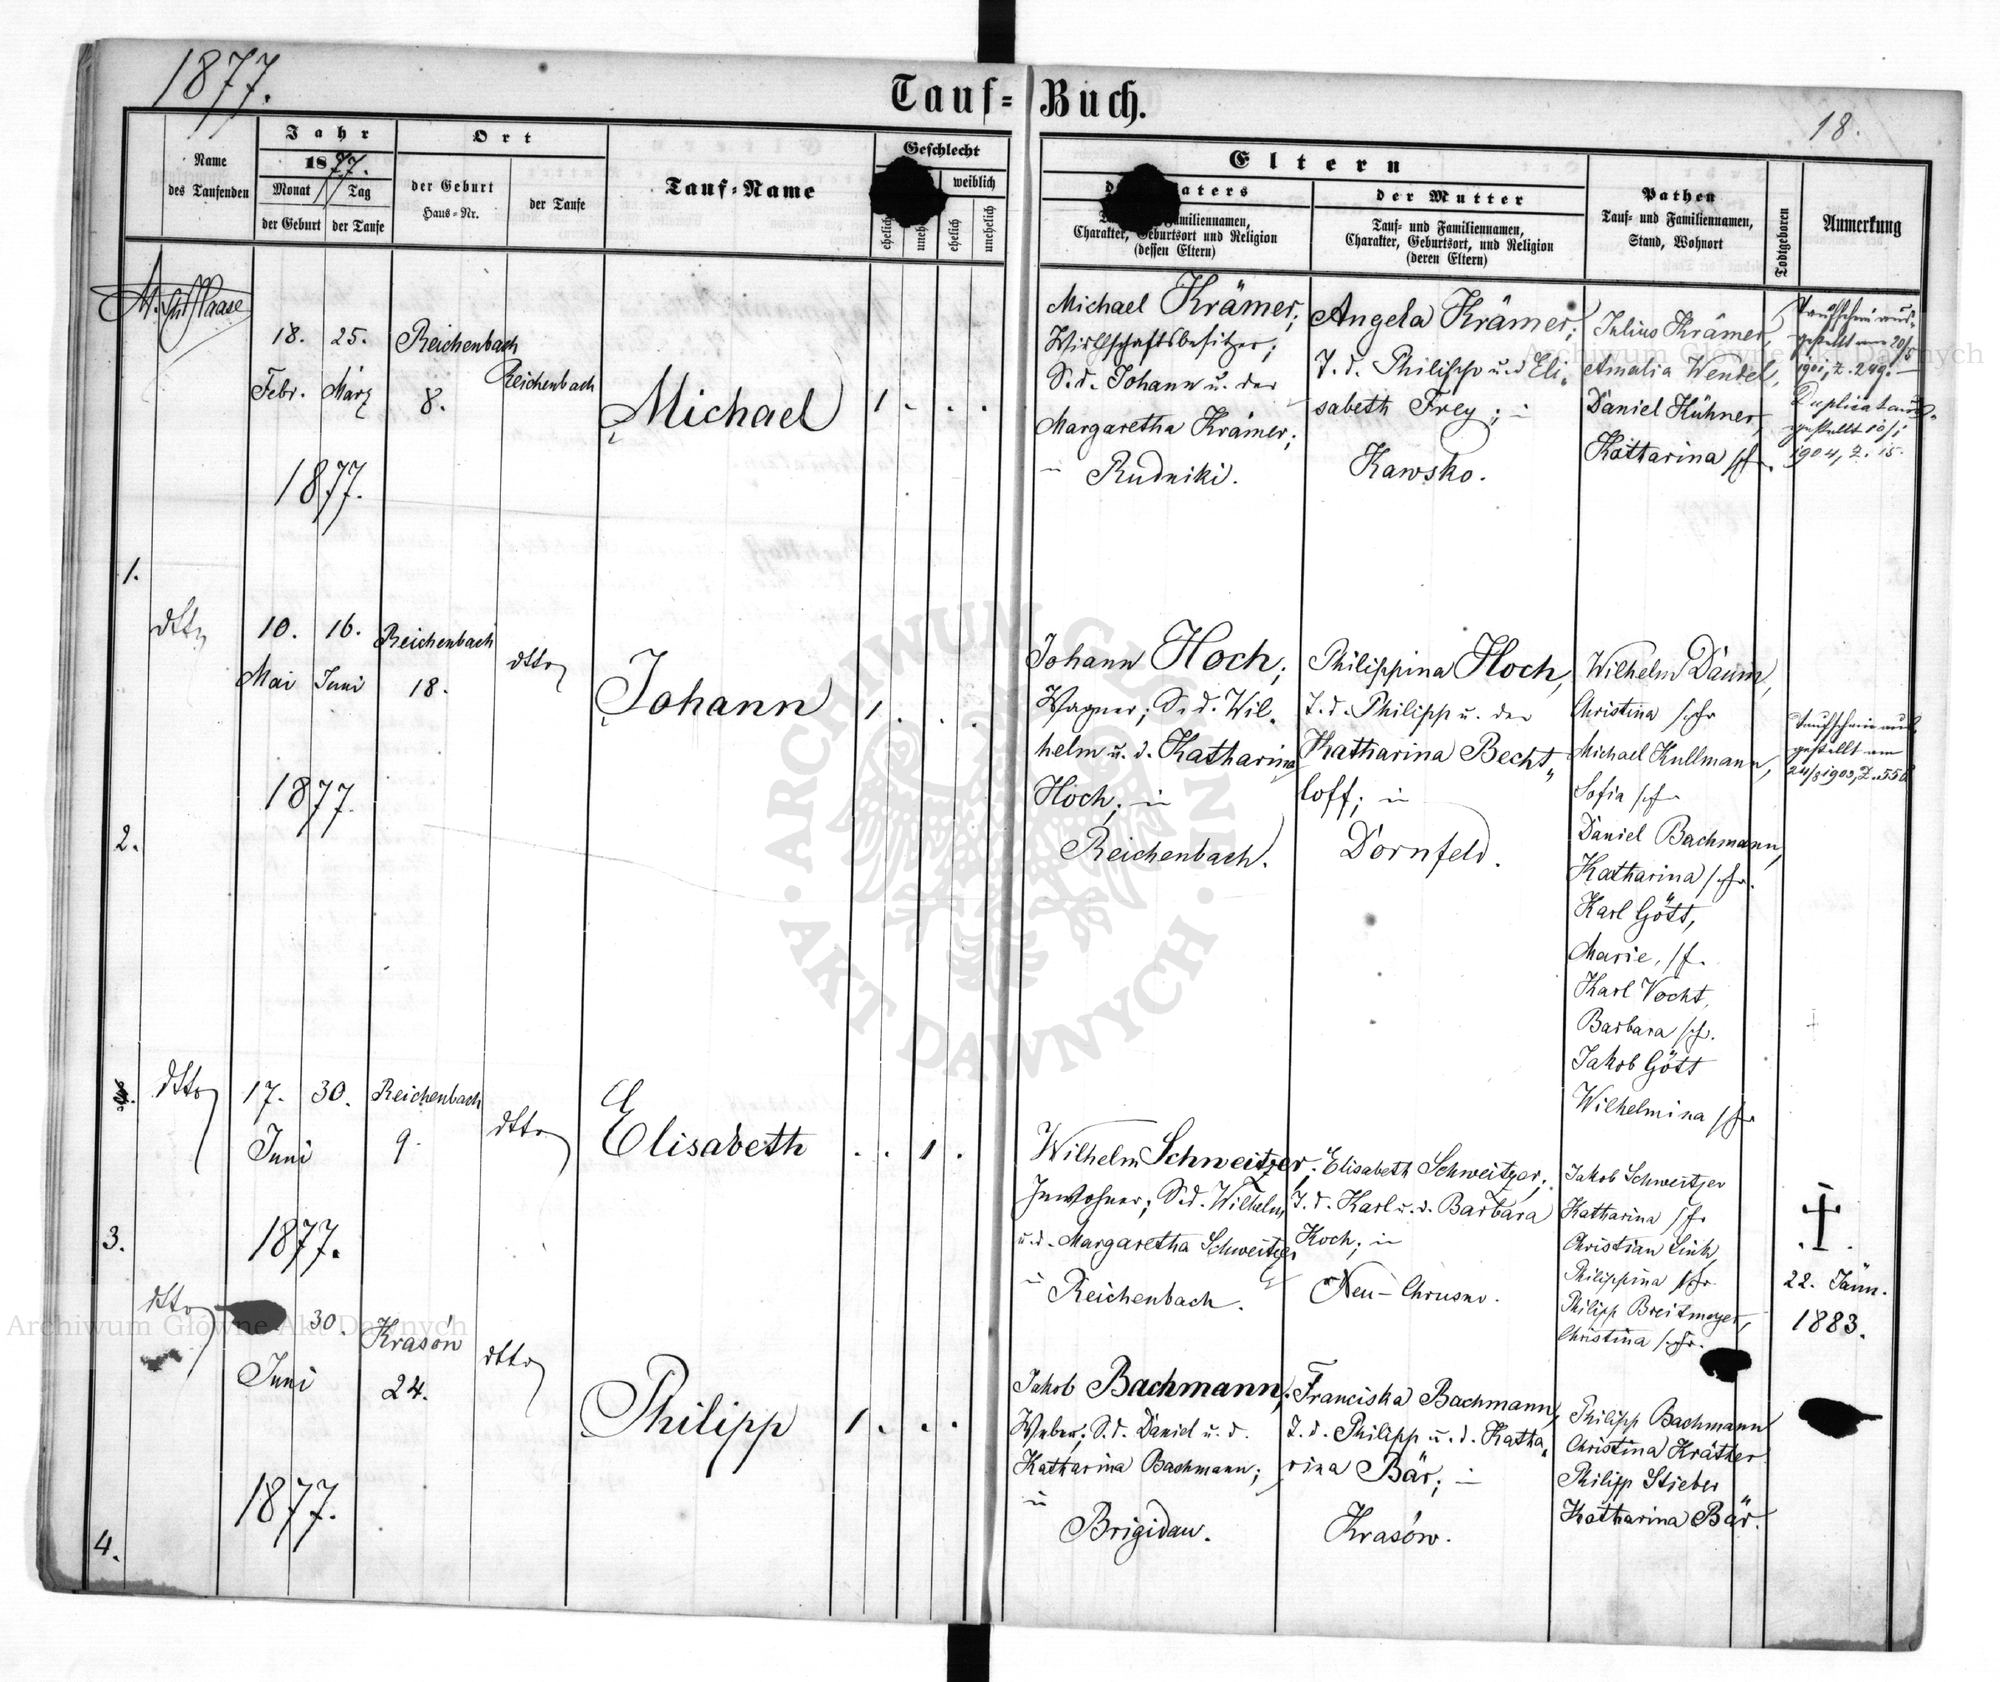 1877.
Tauf=Buch.
18.
Name
des Taufenden
Jahr
1877.
Monat
Tag
der Geburt
der Taufe
Ort
der Geburt
Haus=Nr.
der Taufe
Tauf=Name
Geschlecht
weiblich
ehelich
unehelich
ehelich
unehelich
Eltern
Familiennamen,
Charakter, Geburtsort und Religion
(dessen Eltern)
der Mutter
Tauf= und Familiennamen,
Charakter, Geburtsort, und Religion
(deren Eltern)
Pathen
Tauf= und Familiennamen,
Stand, Wohnort
Todtgeboren
Anmerkung
1.
18. 25.
Febr. März
1877.
Reichenbach
8.
Reichenbach
Michael
1 . . .
Michael Krämer;
Wirthschaftsbesitzer;
S. d. Johann u. der
Margaretha Krämer;
in
Rudniki.
Angela Krämer;
T. d. Philipp u. d Eli=
sabeth Frey; in
Kawsko.
Julius Krämer,
Amalia Wendel,
Daniel Kühner,
Katharina
Taufschein aus=
gestellt am 20/5
1901, Z. 249.
Duplicat aus=
gestellt 10/1
1904, Z. 15.
2.
dtto
10. 16.
Mai Juni
1877.
Reichenbach
18.
dtto
Johann
1 . . .
Johann Hoch;
Wagner; S. d. Wil=
helm u. d. Katharina
Hoch; in
Reichenbach.
Philippina Hoch,
T. d. Philipp u. der
Katharina Becht=
loff; in
Dornfeld.
Wilhelm Daum,
Christina
Michael Kullmann,
Sofia
Daniel Bachmann,
Katharina
Karl Gött,
Marie,
Karl Vocht,
Barbara
Jakob Gött
Wilhelmina
Taufschein aus=
gestellt am
3.
dtto
17. 30.
Juni
1877.
Reichenbach
9.
dtto
Elisabeth
. . 1 .
Wilhelm Schweitzer;
Inwohner; S. d. Wilhelm
u. d. Margaretha Schweitzer
in
Reichenbach.
Elisabeth Schweitzer;
T. d. Karl u. d. Barbara
Koch; in
Neu-Chrusno.
Jakob Schweitzer
Katharina
Christian Link
Philippina
Philipp Breitmayer,
Christina
22. Jänn.
1883.
4.
dtto
30.
Juni
1877.
Krasów
24.
dtto
Philipp
1 . . .
Jakob Bachmann;
Weber; S. d. Daniel u. d.
Katharina Bachmann;
in
Brigidau.
Franciska Bachmann,
T. d. Philipp u. d. Katha=
rina Bär; in
Krasów.
Philipp Bachmann
Christina Kräther
Philipp Stieber
Katharina Bär.
Archiwum Główne Akt Dawnych
Archiwum Główne Akt Dawnych
ARCHIWUM GŁÓWNE · AKT DAWNYCH ·